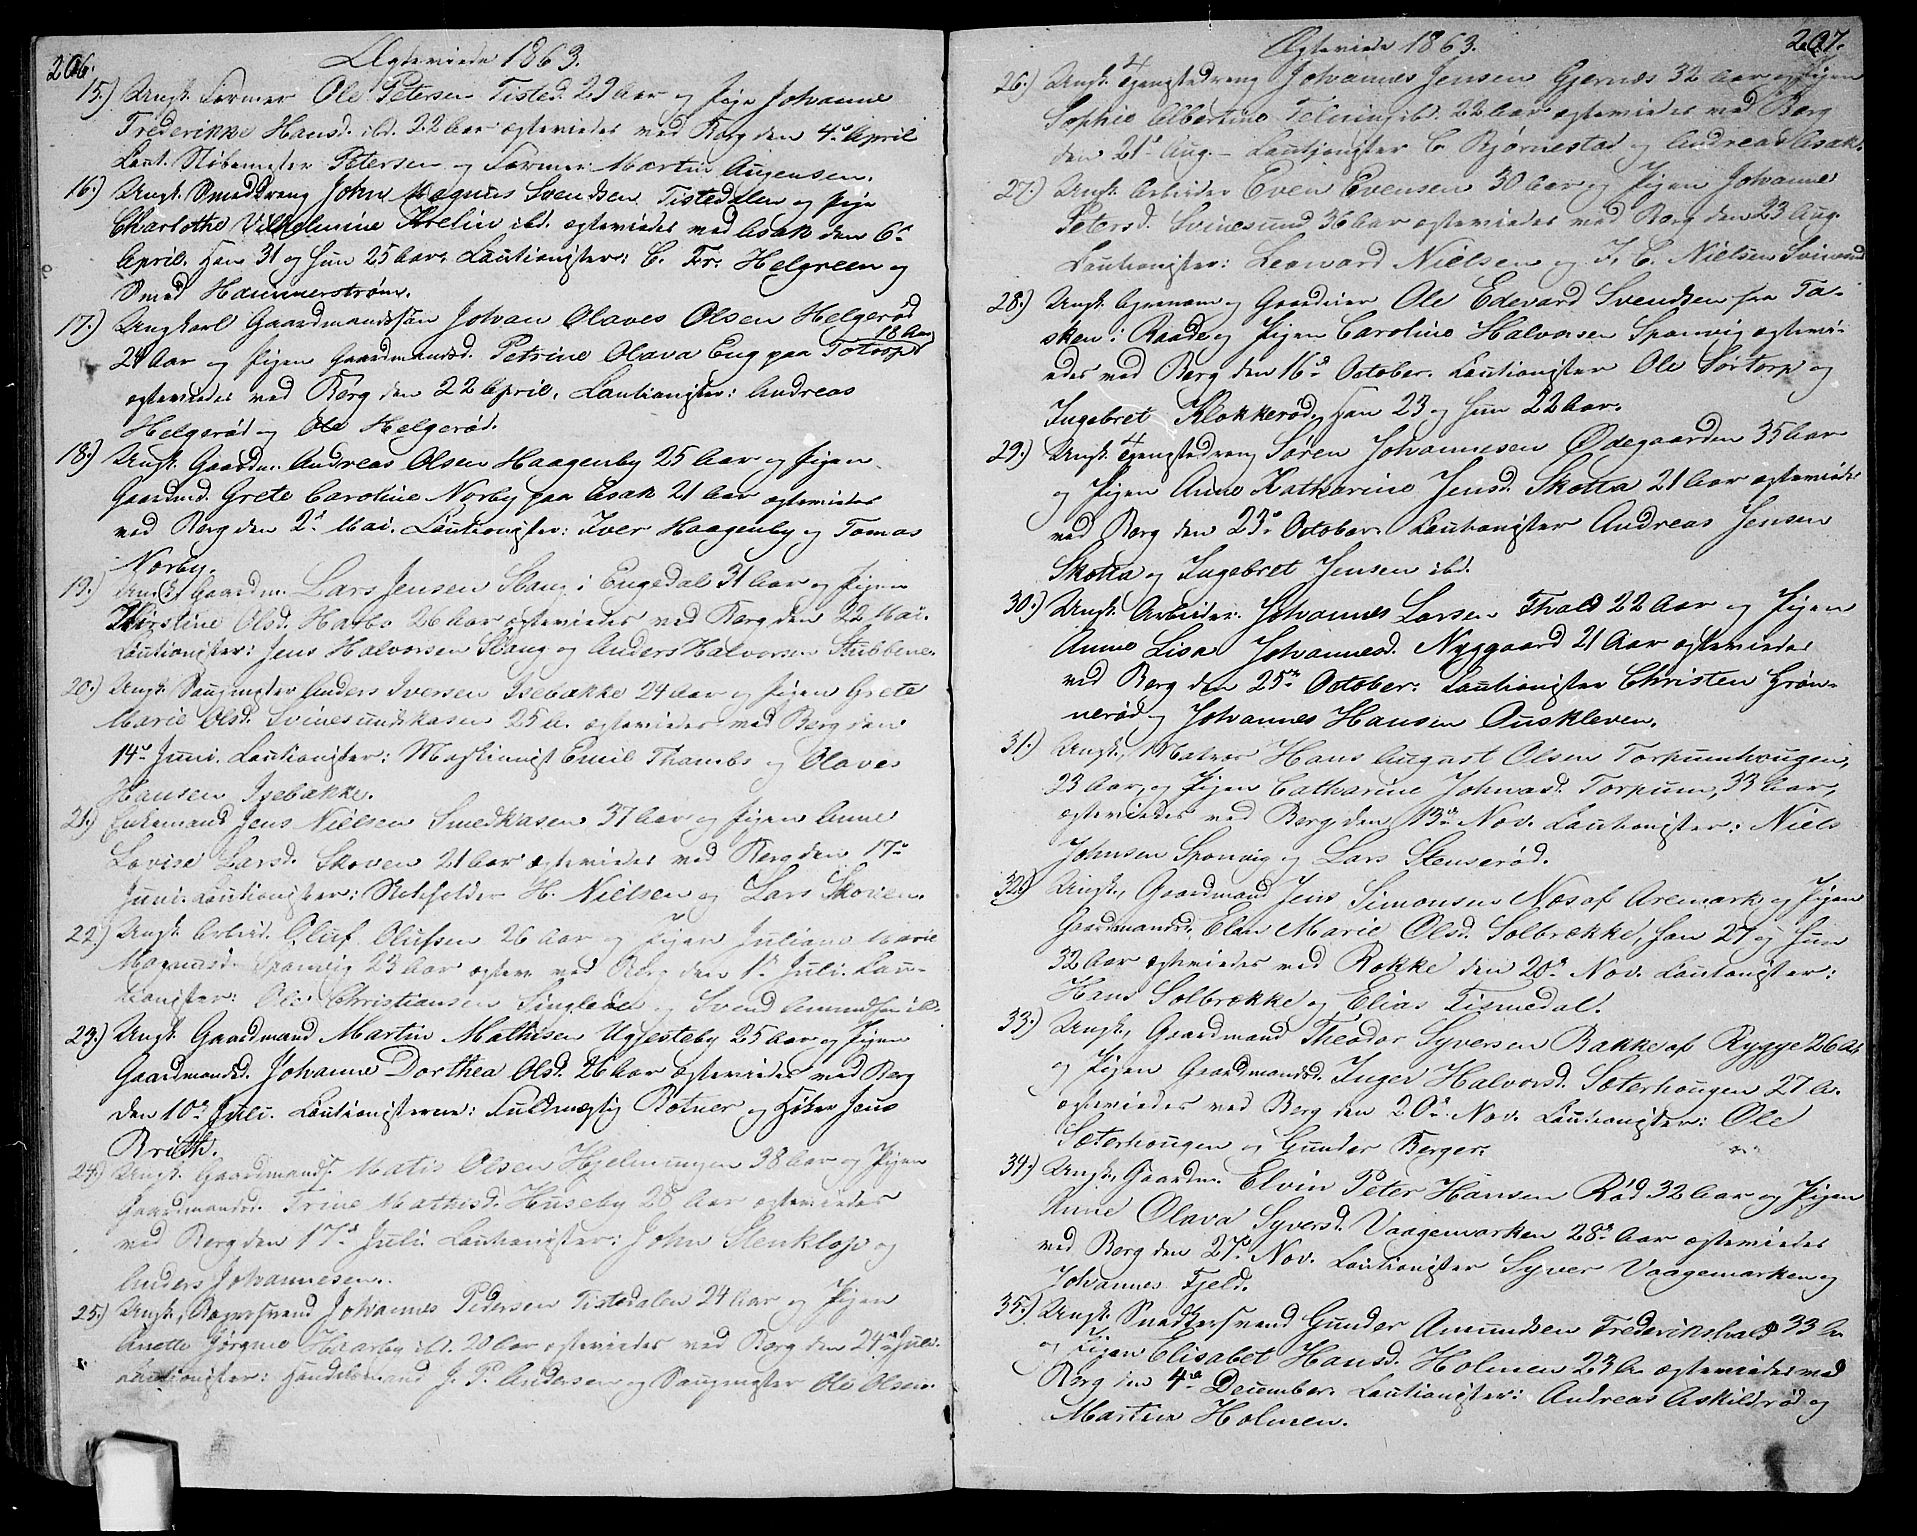 206.
Ægteviede 1863.
15.) Ungk. Former Ole Petersen Tisted. 29 Aar og Pige Johanne
Frederikke Hansd. ibd. 22 Aar ægteviedes ved Berg den 4de April
Caut. Støbemester Petersen og Former Martin Augensen.
16.) Ungk. Smeddreng John Magnus Svendsen Tistedalen og Pige
Charlothe Vilhelmine Krelin ibd. ægteviedes ved Asak den 6te
April. Han 31 og Hun 25 Aar. Cautionister: C. Fr. Helgreen og
Smed Hammerstrøm.
17.) Ungkarl Gaardmandssøn Johan Olaves Olsen Helgerød
24 Aar og Pigen Gaardmandsd. Petrine Olava Eng paa Totorp 18 Aar
ægteviedes ved Berg den 22 April. Cautionister: Andreas
Helgerød og Ole Helgerød.
18.) Ungk. Gaardm. Andreas Olsen Haagenby 25 Aar og Pigen
Gaardmd. Grete Caroline Norby paa Asak 21 Aar ægteviedes
ved Berg den 2d Mai. Cautionister: Iver Haagenby og Tomas
Norby.
19.) Ungk. Gaardm. Lars Jensen Slang i Engedal 31 Aar og Pigen
Kirstine Olsd. Harbo 26 Aar ægteviedes ved Berg den 22 Mai.
Cautionister: Jens Halvorsen Slang og Anders Halvorsen Stubbene.
20.) Ungk. Saugmester Anders Iversen Isebække 24 Aar og Pigen Grete
Marie Olsd. Svinesundskasen 25 A. ægteviedes ved Berg den
14de Juni. Cautionister: Maskinmist Emil Thambs og Olaves
Hansen Isebække.
21.) Enkemand Jens Nielsen Smedkasen 37 Aar og Pigen Anne
Lovise Larsd. Skoven 21 Aar ægteviedes ved Berg den 17de
Juni. Cautionister: H. Nielsen og Lars Skoven.
22.) Ungk. Arbeid. Oluf Olufsen 26 Aar og Pigen Juliane Marie
Mogensd. Sponvig 23 Aar ægtev. ved Berg den 1d Juli. Cau-
tionister: Ole Christiansen og Svend Amundsen ibd.
23.) Ungk. Gaardmand Martin Mathisen Ugjesteby 25 Aar og Pigen
Gaardmandsd. Johanne Dorthea Olsd. 26 Aar ægteviedes ved Berg
den 10de Juli. Cautionisterne: Fuldmægtig Rotner og Høker Jens
Brith.
24.) Ungk. Gaardmands. Matis Olsen Hjelmungen 38 Aar og Pigen
Gaardmandsd. Trine Mathisd. Huseby 28 Aar ægteviedes
ved Berg den 17de Juli. Cautionister: John Stenklop og
Anders Johannesen.
25.) Ungk. Bagersvend Johannes Pedersen Tistedalen 24 Aar og Pigen
Anette Jørgine Haarby ibd. 20 Aar ægteviedes ved Berg den 24de Juli.
Cautionister: Handelsmand J. P. Andersen og Saugmester Ole Olsen.
207.
Ægteviede 1863.
26.) Ungk. Tjenstedreng Johannes Jensen Gjernæs 32 Aar og Pigen
Sophie Albertine Felning ibd. 22 Aar ægteviedes ved Berg
den 21d Aug. Cautionister C. Bjørnestad og Andreas Asak.
27.) Ungk. Arbeider Even Evensen 30 Aar og Pigen Johanne
Petersd. Svinesund 36 Aar ægteviedes ved Berg den 23 Aug.
Cautionister: Leonard Nielsen og F. C. Nielsen Svinesund
28.) Ungk. og Gaardeier Ole Edevard Svendsen fra Ta-
sken i Raade og Pigen Caroline Halvorsen Sponvig ægtevi-
edes ved Berg den 16de October. Cautionister Ole Sørtorp og
Ingebret Klokkerød, Han 23 og Hun 22 Aar.
29.) Ungk. Tjenstedreng Søren Johannesen Ødegaarden 35 Aar
og Pigen Anne Katharine Jensd. Skotta 21 Aar ægteviedes
ved Berg den 23de October. Cautionister Andreas Jensen
Skotta og Ingebret Jensen ibd.
30.) Ungk. Arbeider Johannes Larsen Fhald 22 Aar og Pigen
Anne Lisa Johannesd. Nyggaard 21 Aar ægteviedes
ved Berg den 25de October. Cautionister Christen Grøn-
nerød og Johannes Hansen Auskleven.
31.) Ungk. Matros Hans August Olsen Torpumhougen,
23 Aar, og Pigen Catharine Johnasd. Torpum, 33 Aar,
ægteviedes ved Berg den 13de Nov. Cautionister: Niels
Johnsen Sponvig og Lars Stenserød.
32.) Ungk. Gaardmand Jens Simonsen Næs af Aremark og Pigen
Gaardmandsd. Elen Marie Olsd. Solbrække, han 27 og hun
32 Aar ægteviedes ved Rokke den 20de Nov. Cautionister:
Hans Solbrække og Elias Tismedal.
33.) Ungk. Gaardmand Theodor Syversen Bakke af Rygge 26 Aar
og Pigen Gaardmandsd. Inger Halvorsd. Sæterhougen 27 A.
ægteviedes ved Berg den 20de Nov. Cautionister: Ole
Sæterhougen og Gunder Berger.
34.) Ungk. Gaardm. Elvin Peter Hansen Rød 32 Aar og Pigen
Anne Olava Syversd. Vaagemarken 28 Aar ægteviedes
ved Berg den 27de Nov. Cautionister Syver Vaagemarken og
Johannes Fjeld.
35.) Ungk. Snedkersvend Gunder Amundsen Frederikshald 33 Aar
og Pigen Elisabet Hansd. Holmen 23 A. ægteviedes ved
Berg den 4de December. Cautionister: Andreas Askildrød og
Martin Holmen.